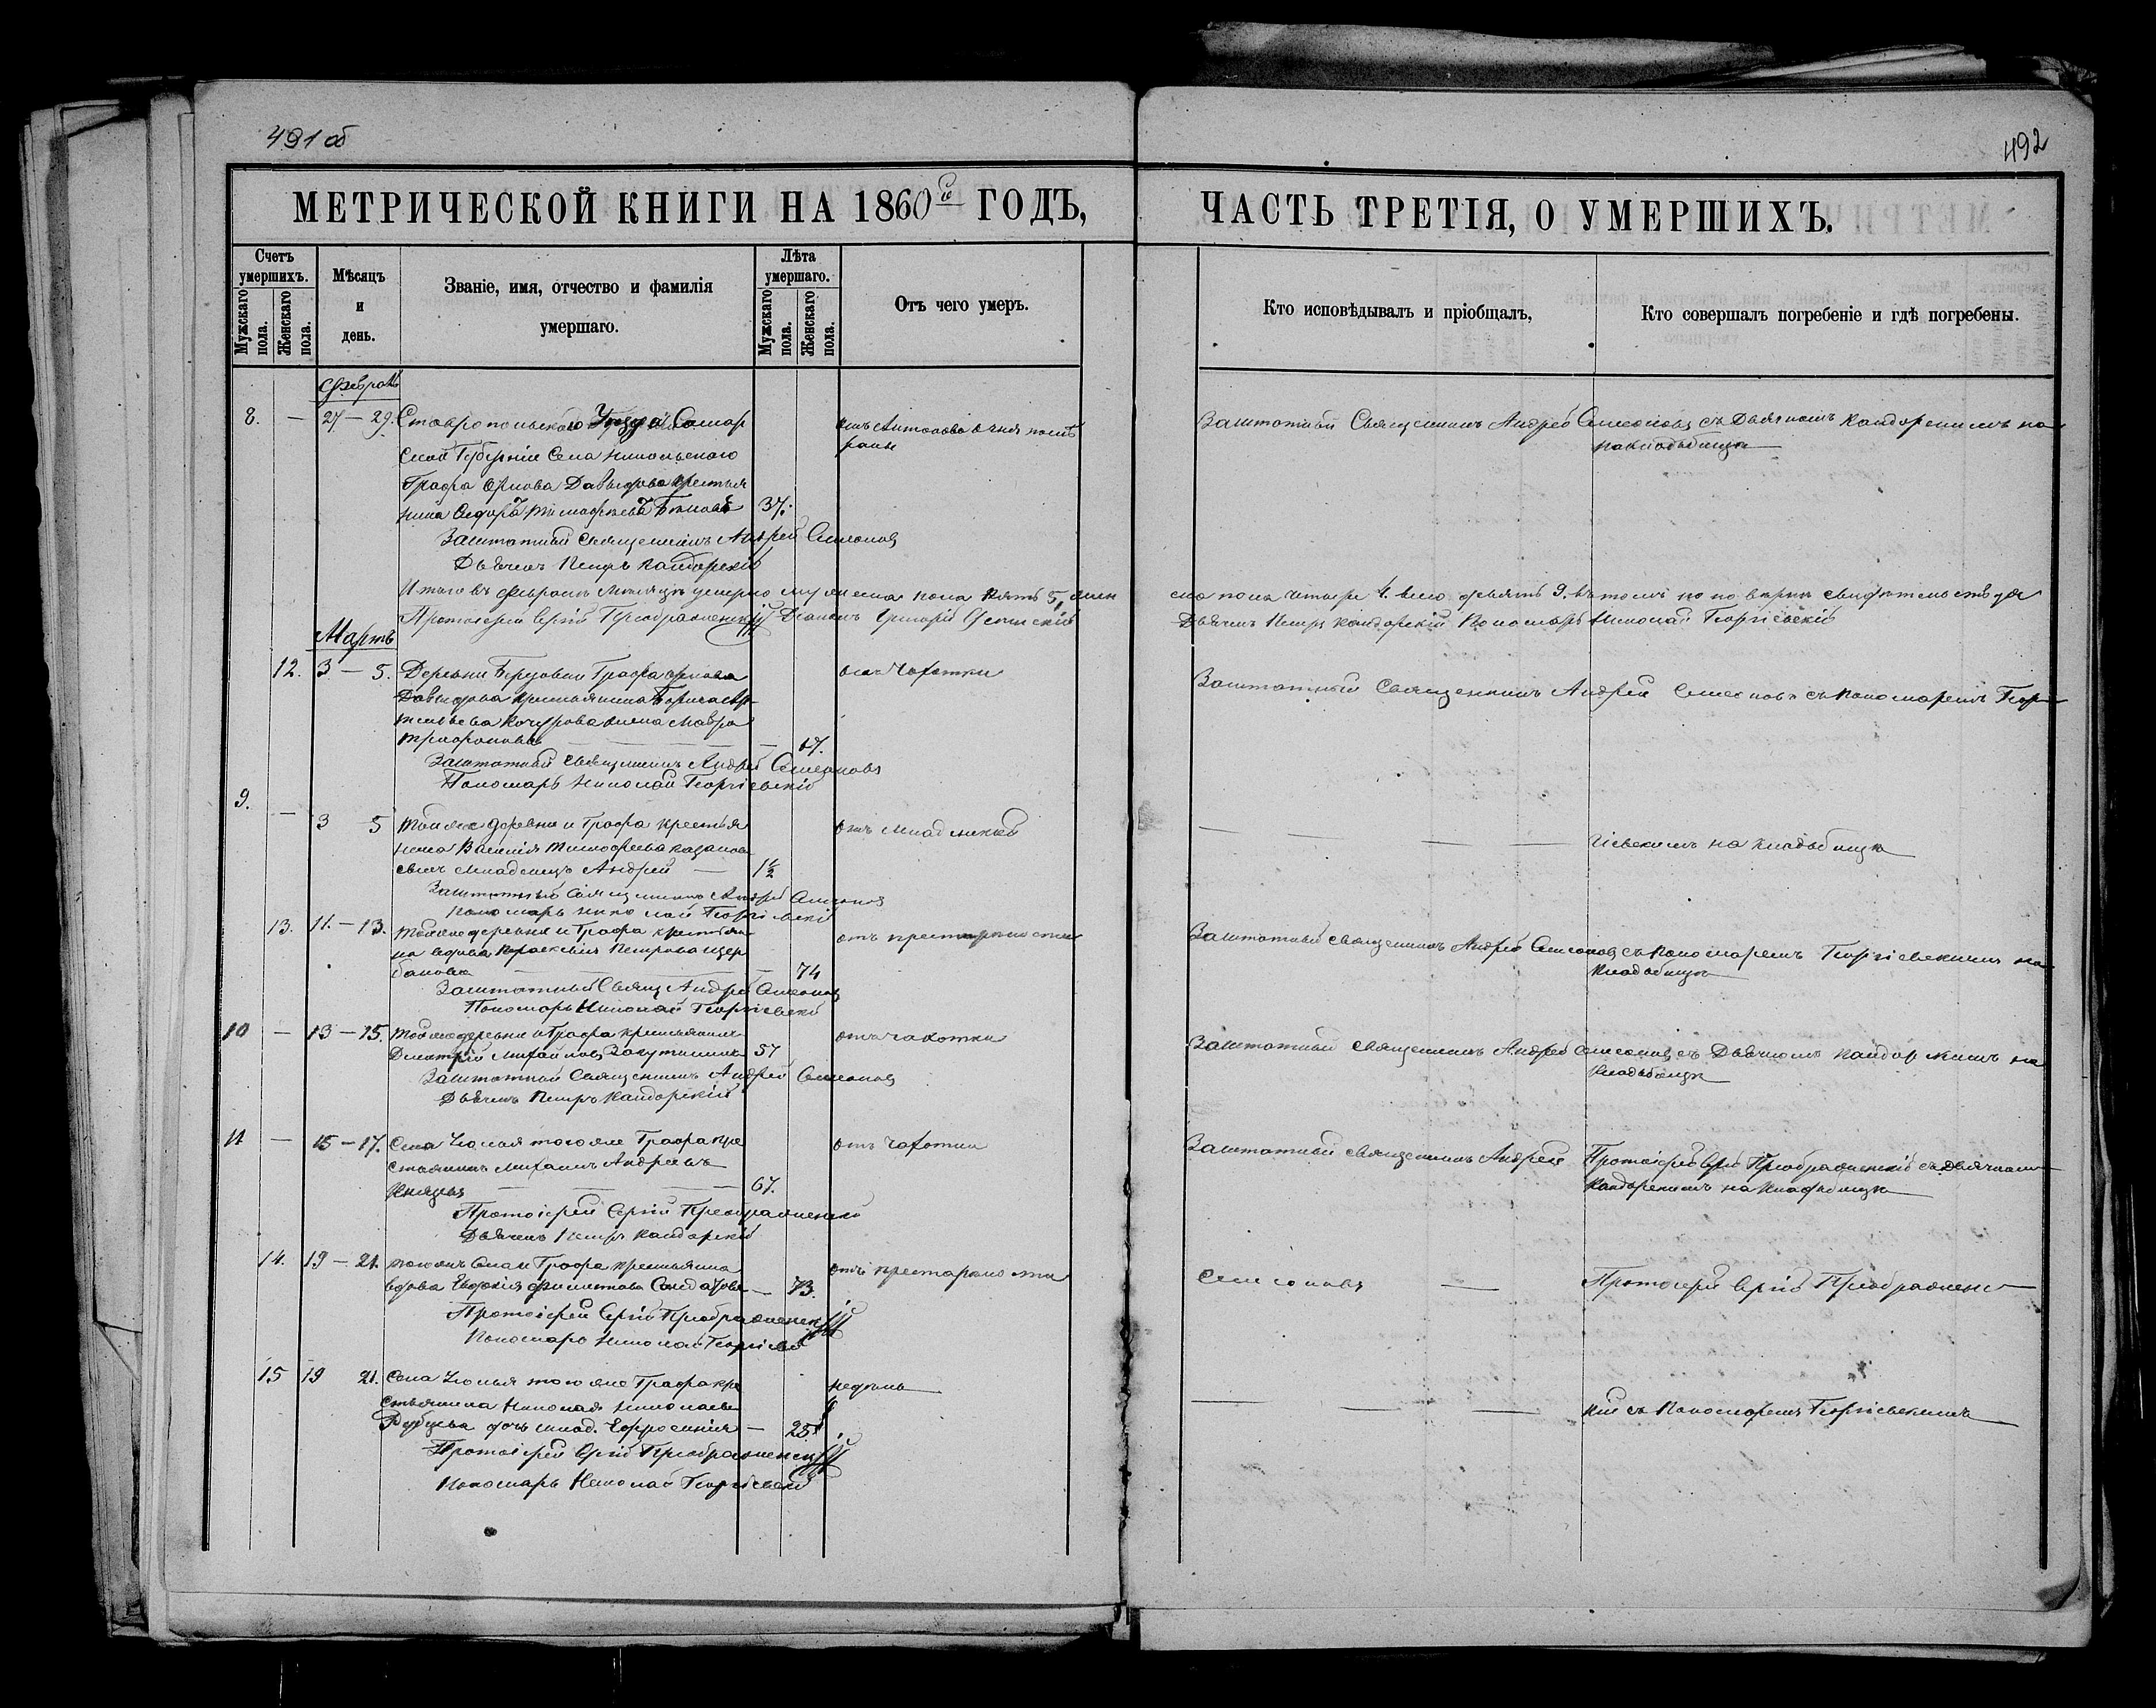 491 об
492
МЕТРИЧЕСКОЙ КНИГИ НА 1860й ГОДЪ,
ЧАСТЬ ТРЕТІЯ, О УМЕРШИХЪ.
Счетъ умершихъ.
Мужскаго пола.
Женскаго пола.
Мѣсяцъ и день.
Званіе, имя, отчество и фамилія умершаго.
Лѣта умершаго.
Мужскаго пола.
Женскаго пола.
Отъ чего умеръ.
Кто исповѣдывалъ и пріобщалъ,
Кто совершалъ погребеніе и гдѣ погребены.
Февраль
8. — 27 — 29. Ставропольскаго Уѣзда Самар
ской Губерніи Села Никольскаго
Графа Орлова Давыдова крестья
нинъ 37.
Заштатный Священникъ Андрей Симеоновъ съ Дьячкомъ Кандорскимъ на
кладбищѣ
Заштатный Священникъ Андрей Симеоновъ
Дьячекъ Петръ Кандорскій
Итого въ Февралѣ Мѣсяцѣ умерло мужеска пола пять 5, жен
ска пола четыре 4. всего девять 9. въ томъ по повѣркѣ свидѣтельствуя
Протоіерей Сергій Преображенскій Діаконъ Григорій
Дьячекъ Петръ Кандорскій Пономарь Николай Георгіевскій
Мартъ
12. 3 — 5. Деревни Березовки Графа Орлова
Давыдова крестьянина Бориса
жена Мавра
Трифонова — 67.
отъ чахотки
Заштатный Священникъ Андрей Симеоновъ съ Пономаремъ Геор
Заштатный Священникъ Андрей Симеоновъ
Пономарь Николай Георгіевскій
9. — 3 5 Той же деревни и Графа крестья
нина Василія Тимофеева
сынъ младенецъ Андрей — 1½
отъ младенской
гіевскимъ на кладбищѣ
Заштатный Священникъ Андрей Симеоновъ
Пономарь Николай Георгіевскій
13. 11. — 13. Той же деревни и Графа крестьян
ка вдова Параскевія Петрова Щер
бакова — 74
отъ престарѣлости
Заштатный Священникъ Андрей Симеоновъ съ Пономаремъ Георгіевскимъ на
кладбищѣ
Заштатный Свящ Андрей Симеоновъ
Пономарь Николай Георгіевскій
10 — 13 — 15. Той же деревни и Графа крестьянинъ
Дмитрій Михайловъ 57
отъ чахотки
Заштатный Священникъ Андрей Симеоновъ съ Дьячкомъ Кандорскимъ на
кладбищѣ
Заштатный Священникъ Андрей Симеоновъ
Дьячекъ Петръ Кандорскій
11 — 15 — 17. Села Усолья того же Графа кре
стьянинъ Михаилъ Андреевъ
Князевъ — 67.
отъ чахотки
Заштатный Священникъ Андрей
Протоіерей Сергій Преображенскій съ Дьячкомъ
Кандорскимъ на кладбищѣ
Протоіерей Сергій Преображенскій
Дьячекъ Петръ Кандорскій
14. 19 — 21. того жъ Села и Графа крестьянка
вдова Евдокія — 73.
отъ престарѣлости
Симеоновъ —
Протоіерей Сергій Преображенс
Протоіерей Сергій Преображенскій
Пономарь Николай Георгіевскій
15 19 21. Села Усолья того же Графа кре
стьянина Николая Николаева
дочь млад. Ефросинія — 25
недѣль
кій съ Пономаремъ Георгіевскимъ
Протоіерей Сергій Преображенскій
Пономарь Николай Георгіевскій